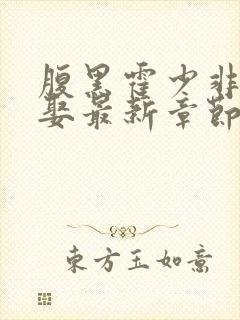 腹黑霍少非
娶最新章节
东方玉如意